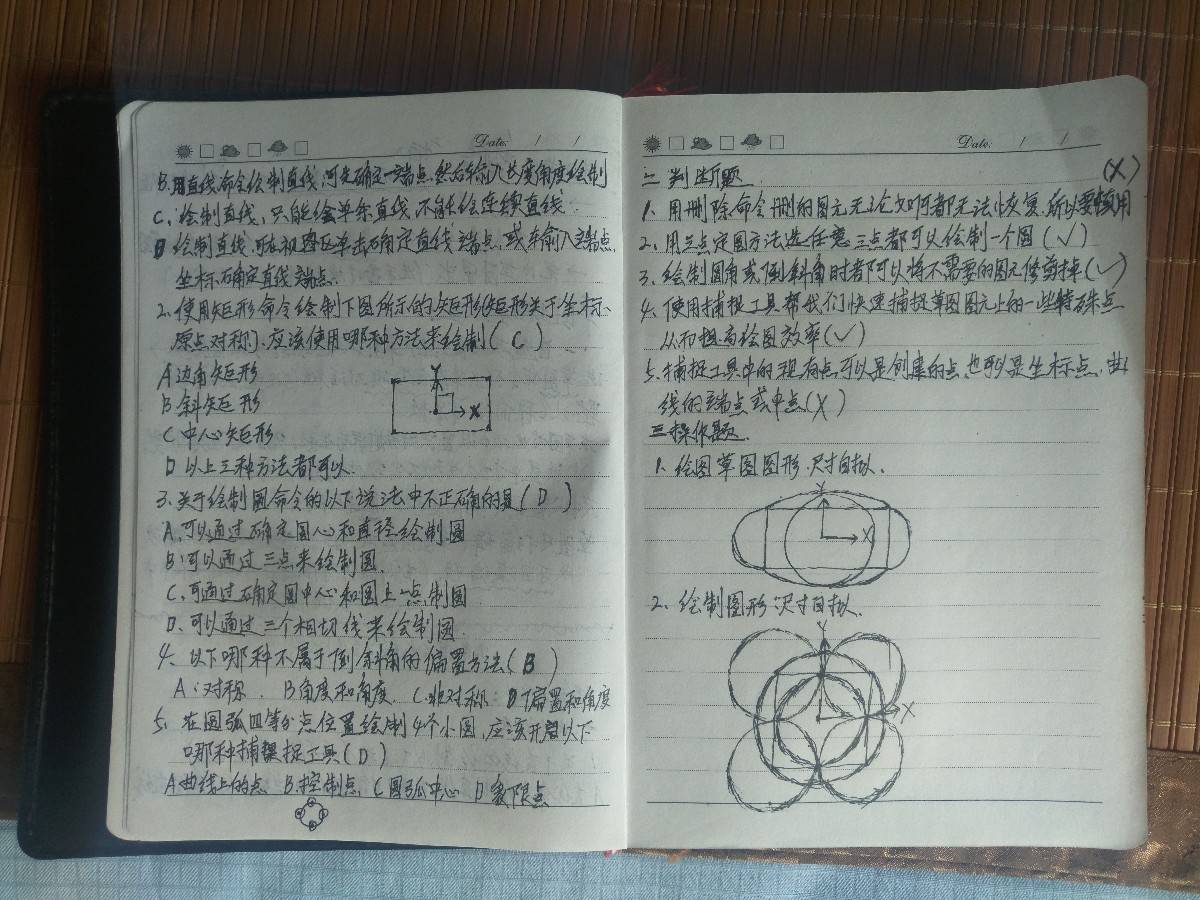 Date: / /
B. 用直线命令绘制直线,可先确定一端点,然后输入长度角度绘制
C、绘制直线,只能绘单条直线,不能绘连续直线.
D 绘制直线,可在视图区单击确定直线端点,或输入端点
坐标确定直线端点.
2、使用矩形命令绘制下图所示的矩形(矩形关于坐标
原点对称),应该使用哪种方法来绘制( C )
A 边角矩形
B 斜矩形
C 中心矩形
D 以上三种方法都可以.
Y
X
3、关于绘制圆命令的以下说法中不正确的是( D )
A、可以通过确定圆心和直径绘制圆
B、可以通过三点来绘制圆.
C、可通过确定圆中心和圆上一点制圆
D、可以通过三个相切线来绘制圆.
4、以下哪种不属于倒斜角的偏置方法( B )
A、对称. B 角度和角度. C、非对称. D 偏置和角度
5、在圆弧四等分点位置绘制4个小圆,应该开启以下
哪种捕捉工具( D )
A 曲线上的点 B、控制点 C 圆弧中心 D 象限点
Date: / /
二 判断题. (X)
1、用删除命令删的图元无论如何都无法恢复,所以要慎用
2、用三点定圆方法选任意三点都可以绘制一个圆(√)
3、绘制圆角或倒斜角时都可以将不需要的图元修剪掉(√)
4、使用捕捉工具帮我们快速捕捉草图图元上的一些特殊点
从而提高绘图效率(√)
5、捕捉工具中的现有点,可以是创建的点,也可以是坐标点,曲
线的端点或中点(X)
三操作题.
1、绘图草图图形.尺寸自拟.
Y
X
2、绘制图形.尺寸自拟.
Y
X